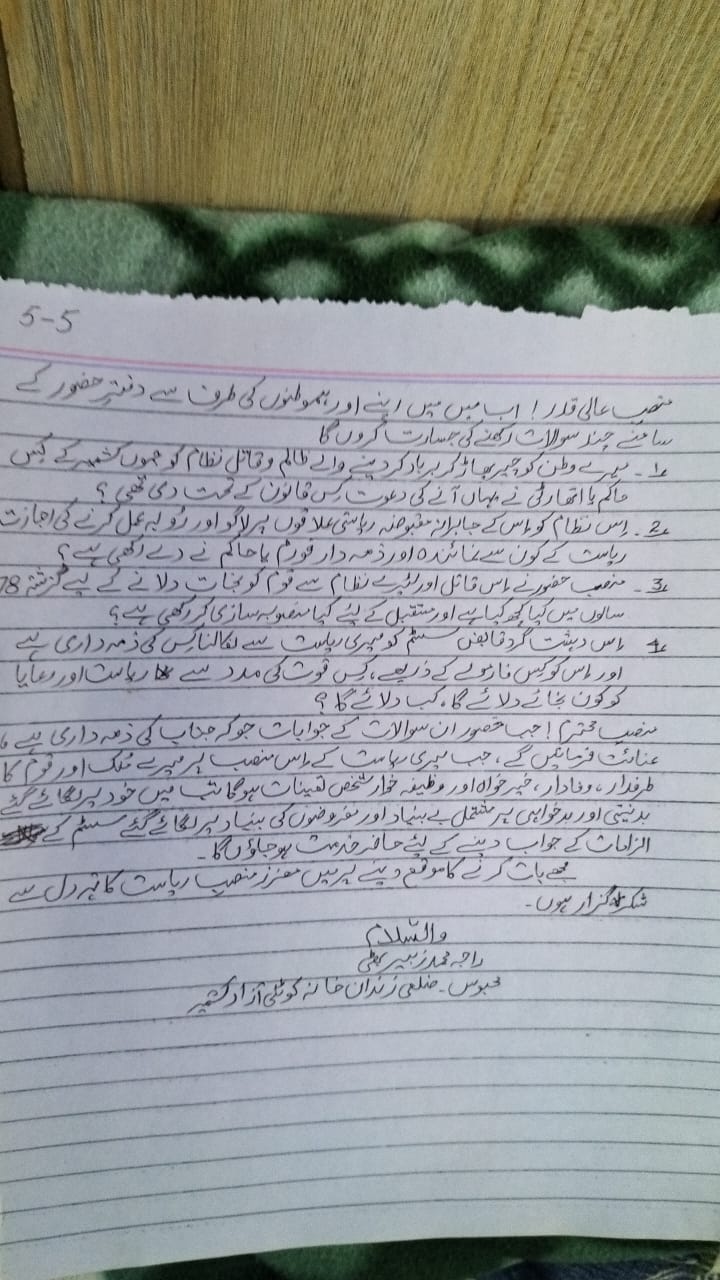 5-5
منصب عالی قدر! اب میں میں اپنے اور ہموطنوں کی طرف سے دفترِ حضور کے
سامنے چند سوالات رکھنے کی جسارت کروں گا
1۔ میرے وطن کو چیر پھاڑ کر برباد کر دینے والے ظالم و قاتل نظام کو جموں کشمیر کے کِس
حاکم یا اتھارٹی نے یہاں آنے کی دعوت کس قانون کے تحت دی تھی؟
2۔ اِس نظام کو اِس کے جابرانہ مقبوضہ ریاستی علاقوں پر لاگو اور رُو بہ عمل کرنے کی اجازت
ریاست کے کون سے نمائندہ اور ذمہ دار فورم یا حاکم نے دے رکھی ہے؟
3۔ منصب حضور نے اِس قاتل اور لٹیرے نظام سے قوم کو نجات دلانے کے لیے گزشتہ 78
سالوں میں کیا کچھ کیا ہے اور مستقبل کے لیئے کیا منصوبہ سازی کر رکھی ہے؟
4۔ اِس دہشت گرد قابض سسٹم کو میری ریاست سے نکالنا کِس کی ذمہ داری ہے
اور اِس کو کِس فارمولے کے ذریعے، کِس قوت کی مدد سے ریاست اور رعایا
کو کون نجات دلائے گا، کب دلائے گا؟
منصبِ محترم! جب حضور ان سوالات کے جوابات جو کہ جناب کی ذمہ داری ہے
عنائت فرمائیں گے، جب میری ریاست کے اِس منصب پر میرے مُلک اور قوم کا
طرفدار، وفادار، خیر خواہ اور وظیفہ خوار شخص تعینات ہو گا تب میں خود پر لگائے گئے
بدنیتی اور بدخواہی پر مشتمل بے بنیاد اور مفروضوں کی بنیاد پر لگائے گئے سسٹم کے
الزامات کے جواب دینے کے لیئے حاضر خدمت ہو جاؤں گا۔
مجھے بات کرنے کا موقع دینے پر میں معزز منصبِ ریاست کا تہہ دل سے
شکر گزار ہوں۔
والسّلام
راجہ محمد زبیر بھٹی
محبوس۔ ضلعی زندان خانہ کوٹلی آزاد کشمیر